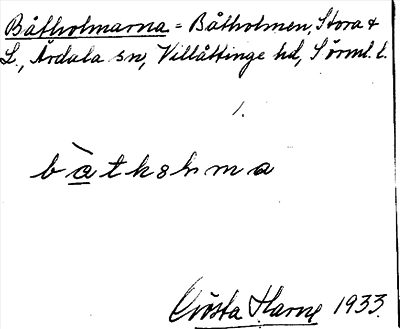 Båtholmarna = Båtholmen, Stora &
L., Årdala sn, Villåttinge hd, Sörml. l.
1.
bàtkshma
Gösta Harne 1933.